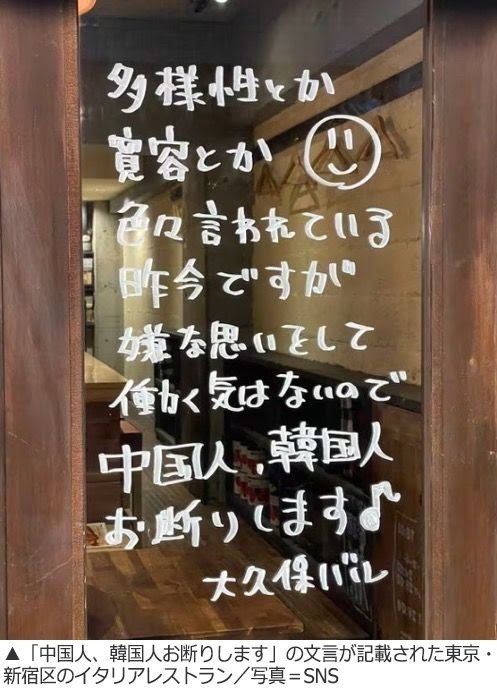 多様性とか
寛容とか
色々言われている
昨今ですが
嫌な思いをして
働く気はないので
中国人、韓国人
お断りします♪
大久保バル
▲「中国人、韓国人お断りします」の文言が記載された東京・
新宿区のイタリアレストラン／写真＝SNS